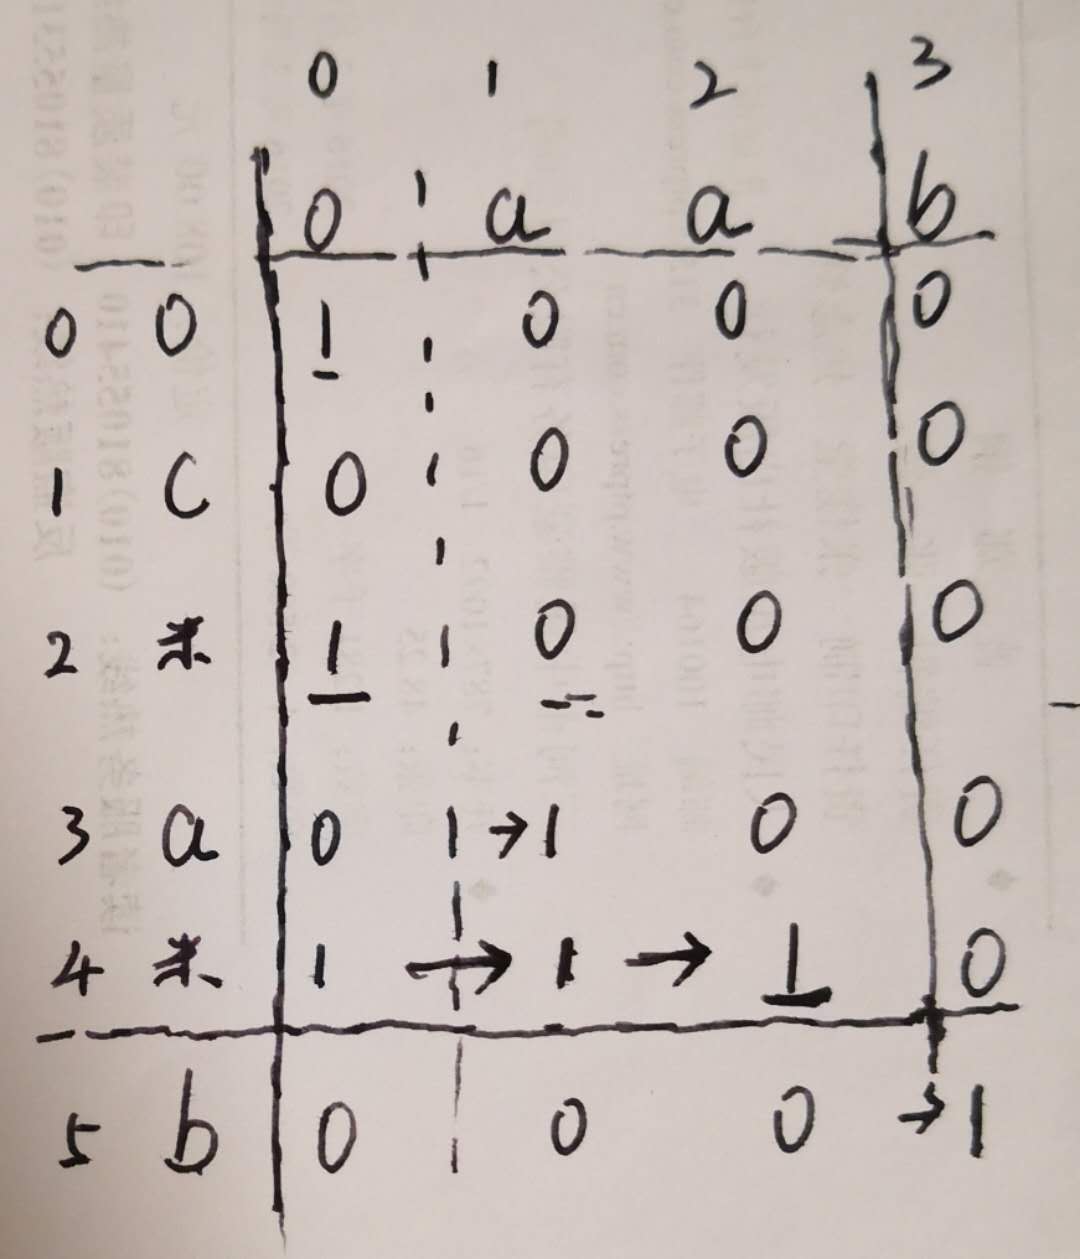 0 1 2 3
0 a a b
0 0 1 0 0 0
1 c 0 0 0 0
2 * 1 0 0 0
3 a 0 →1 0 0
4 * 1 → 1 → 1 0
5 b 0 0 0 →1